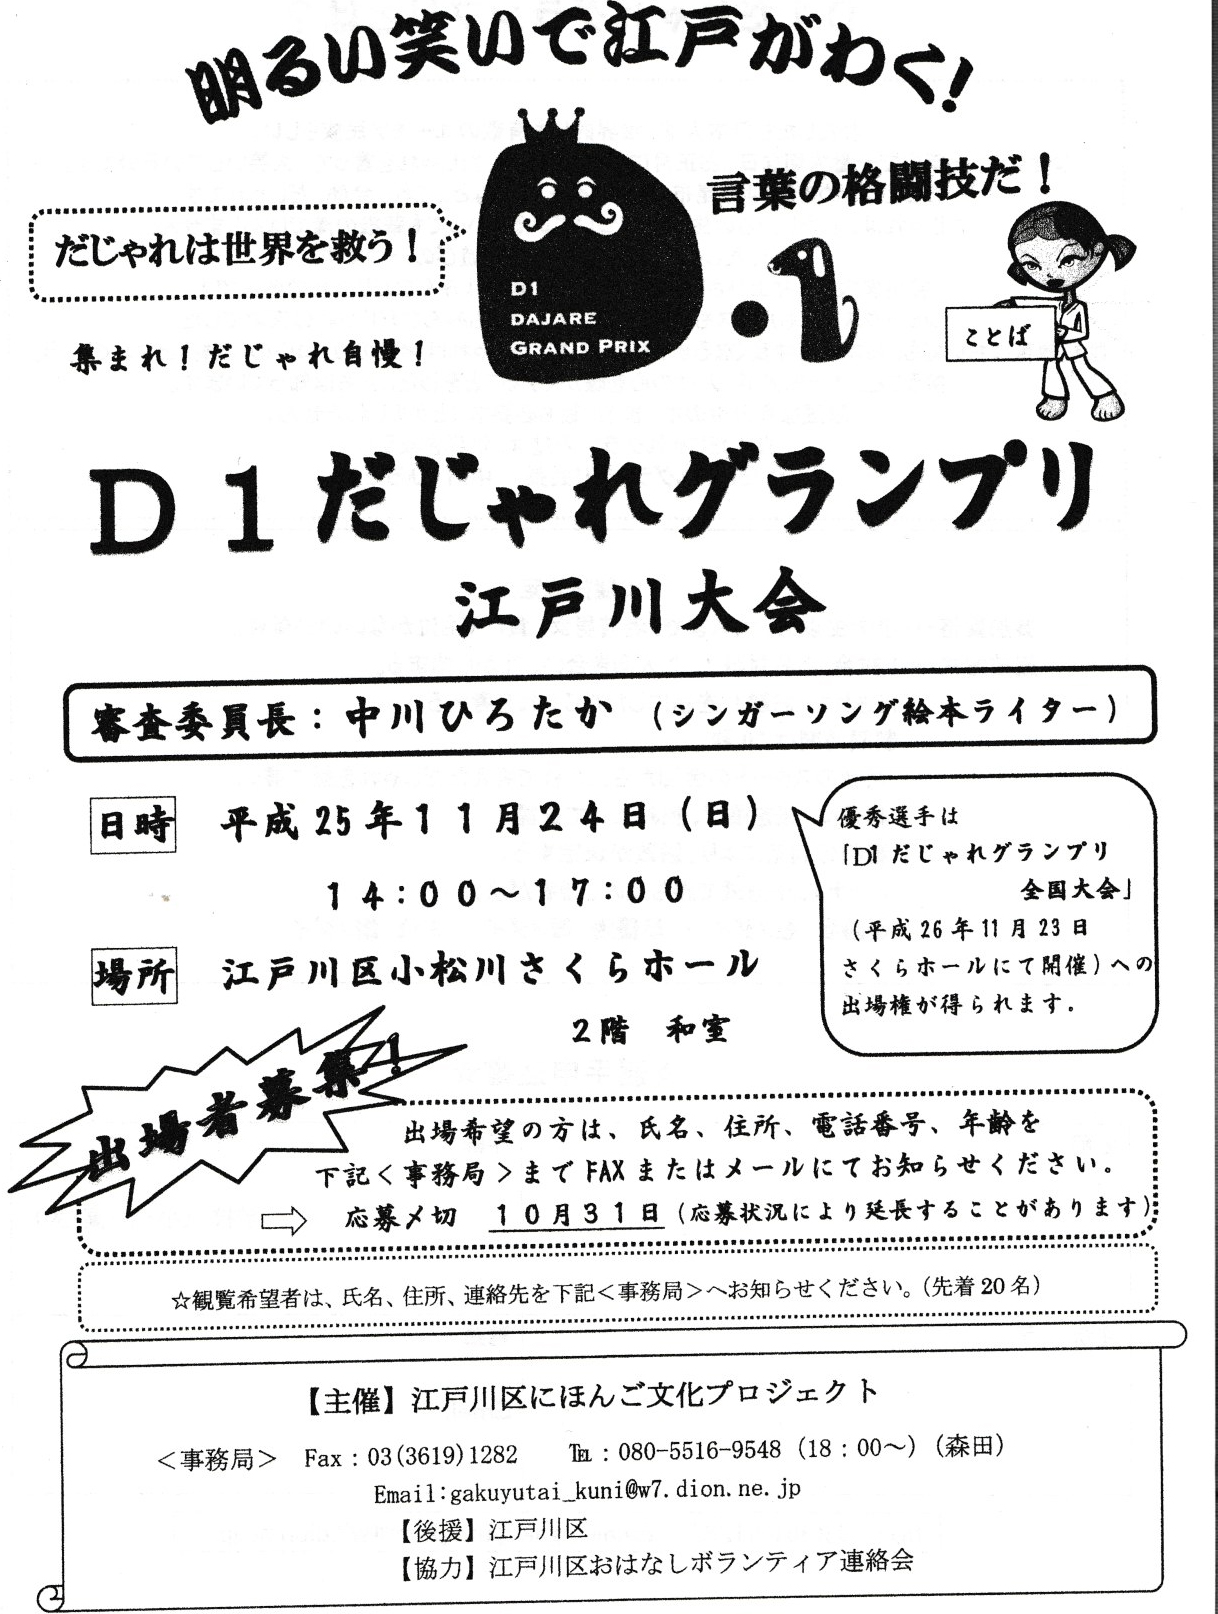 明るい笑いで江戸がわく!
言葉の格闘技だ!
だじゃれは世界を救う!
D1
DAJARE
GRAND PRIX
ことば
集まれ!だじゃれ自慢!
D1だじゃれグランプリ
江戸川大会
審査委員長:中川ひろたか (シンガーソング絵本ライター)
日時 平成25年11月24日(日)
14:00~17:00
場所 江戸川区小松川さくらホール
2階 和室
優秀選手は
「D1だじゃれグランプリ
全国大会」
(平成26年11月23日
さくらホールにて開催)への
出場権が得られます.
出場者募集!
出場希望の方は、氏名、住所、電話番号、年齢を
下記<事務局>までFAXまたはメールにてお知らせください.
⇨ 応募〆切 10月31日(応募状況により延長することがあります)
☆観覧希望者は、氏名、住所、連絡先を下記<事務局>へお知らせください。(先着20名)
【主催】江戸川区にほんご文化プロジェクト
<事務局> Fax:03(3619)1282 ℡:080-5516-9548 (18:00~) (森田)
Email:gakuyutai_kuni@w7.dion.ne.jp
【後援】江戸川区
【協力】江戸川区おはなしボランティア連絡会